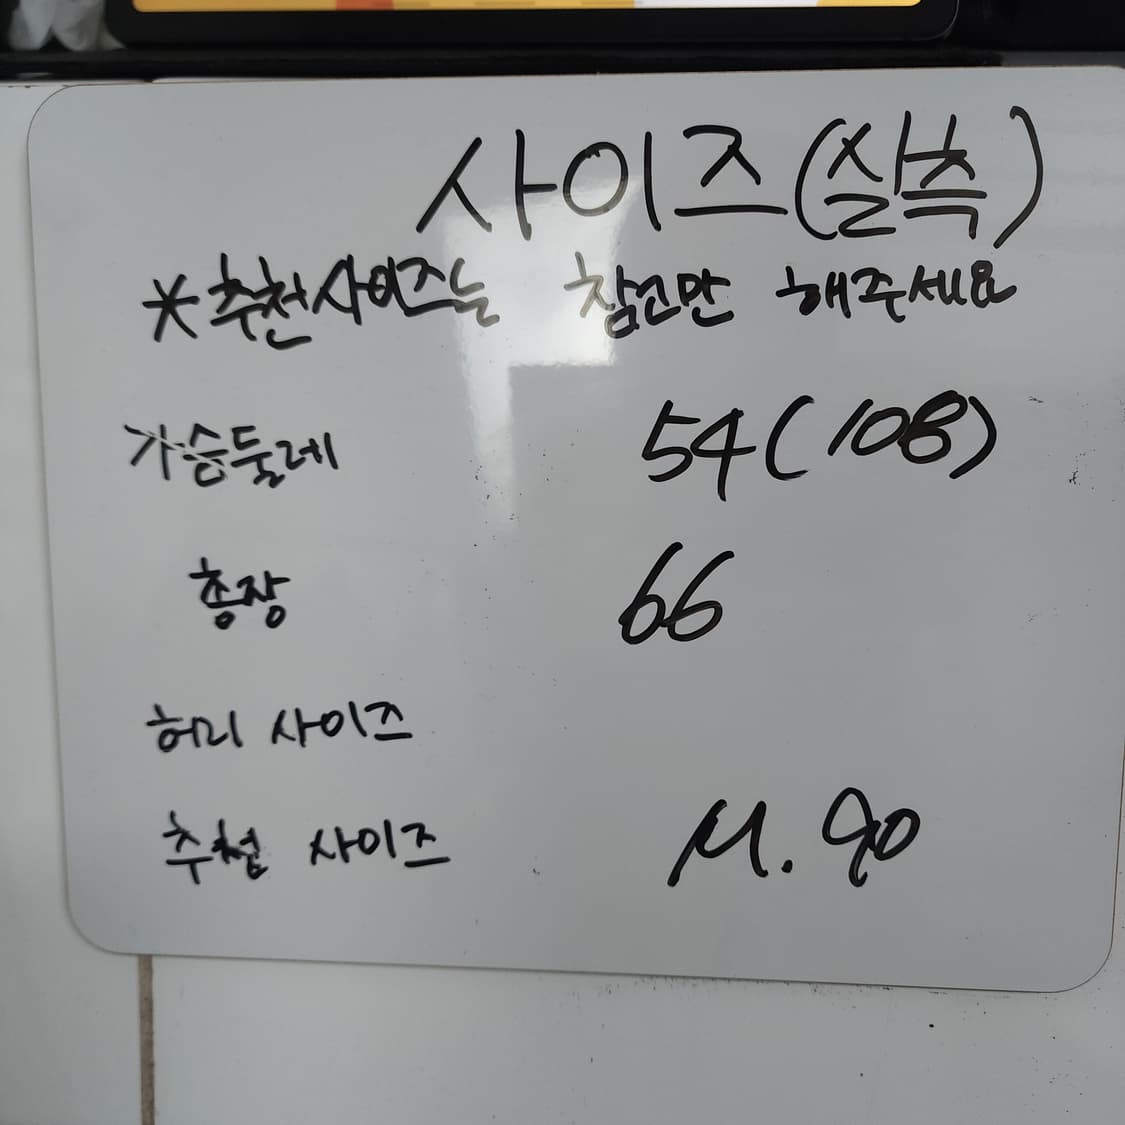 사이즈(실측)
*추천사이즈는 참고만 해주세요
가슴둘레 54(108)
총장 66
허리 사이즈
추천 사이즈 M. 90